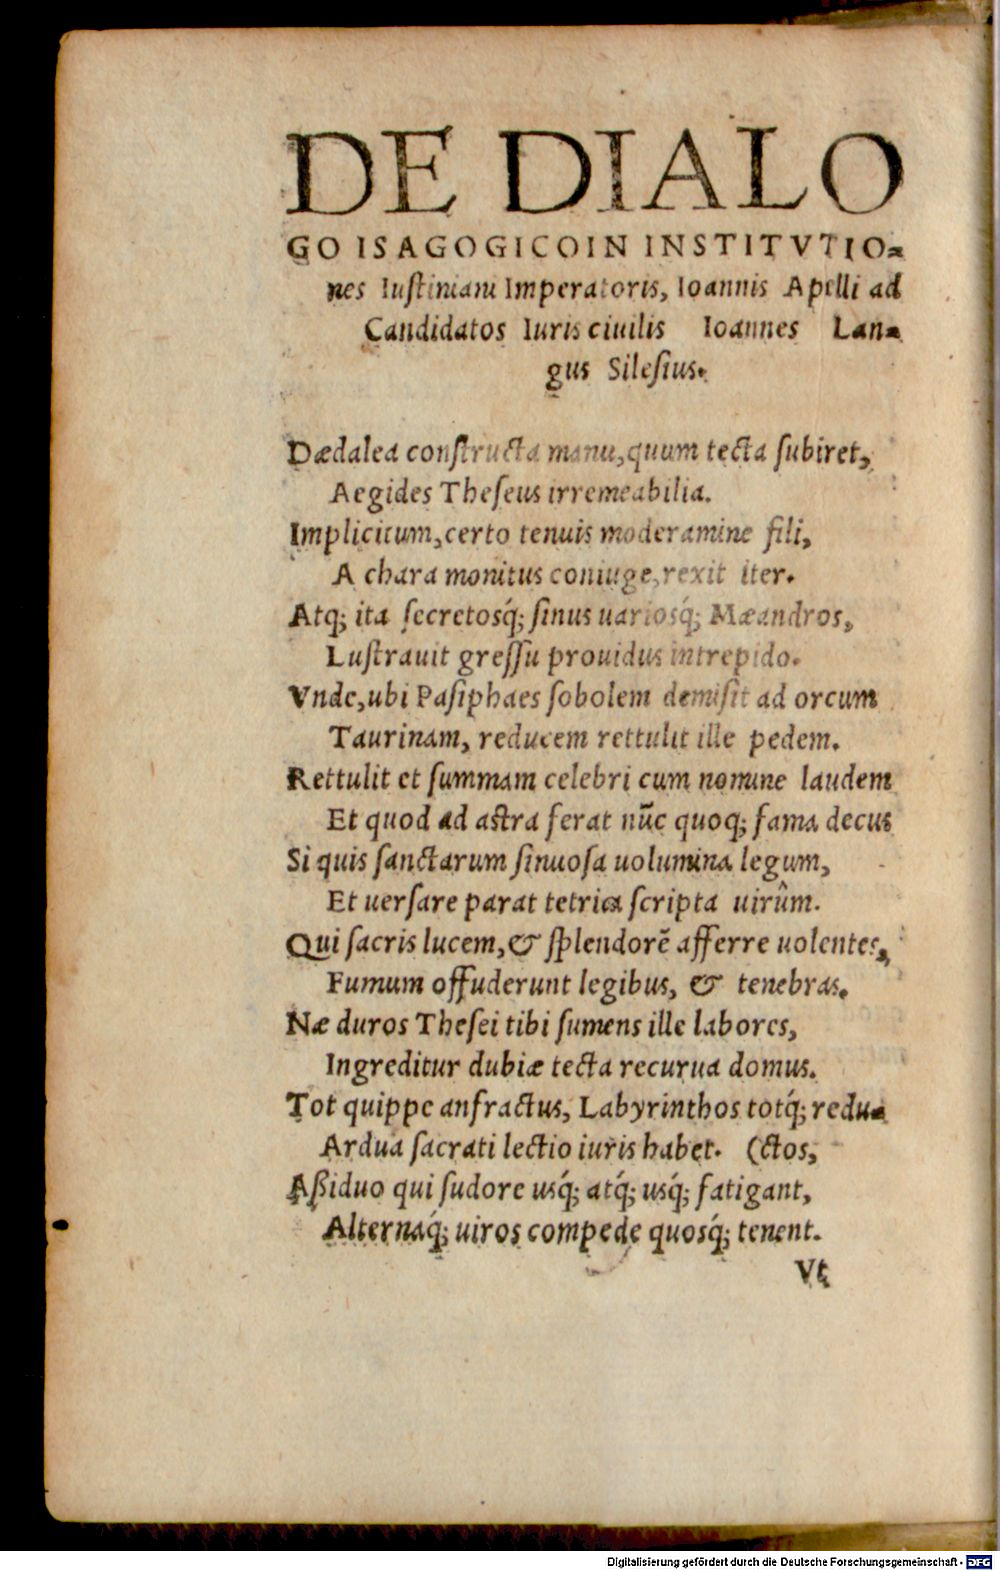 DE DIALO
GO ISAGOGICO IN INSTITVTIO-
nes Iustiniani Imperatoris, Ioannis Apelli ad
Candidatos Iuris ciuilis Ioannes Lan-
gus Silesius.
Dædalea constructa manu, quum tecta subiret,
Aegides Theseus irremeabilia.
Implicitum, certo tenuis moderamine fili,
A chara monitus coniuge, rexit iter.
Atq; ita secretosq́; sinus uariosq́; Mæandros,
Lustrauit gressu prouidus intrepido.
Vnde, ubi Pasiphaes sobolem demisit ad orcum
Taurinam, reducem rettulit ille pedem.
Rettulit et summam celebri cum nomine laudem
Et quod ad astra ferat nūc quoq; fama decus
Si quis sanctarum sinuosa uolumina legum,
Et uersare parat tetrica scripta uirûm.
Qui sacris lucem, & splendorē afferre uolentes,
Fumum offuderunt legibus, & tenebras.
Næ duros Thesei tibi sumens ille labores,
Ingreditur dubiæ tecta recurua domus.
Tot quippe anfractus, Labyrinthos totq́; redu-
Ardua sacrati lectio iuris habet. (ctos,
Aßiduo qui sudore usq́; atq́; usq́; fatigant,
Alternaq́; uiros compede quosq́; tenent.
Vt
Digitalisierung gefördert durch die Deutsche Forschungsgemeinschaft - DFG